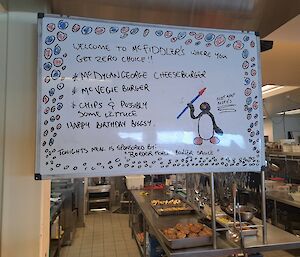 WELCOME TO MCFIDDLER'S WHERE YOU
GET ZERO CHOICE!!
* MCDYLAN GEORGE CHEESEBURGER
* MC VEGIE BURGER
* CHIPS & POSSIBLY
SOME LETTUCE
HAPPY BIRTHDAY BIGGSY
TONIGHTS MEAL IS SPONSORED BY